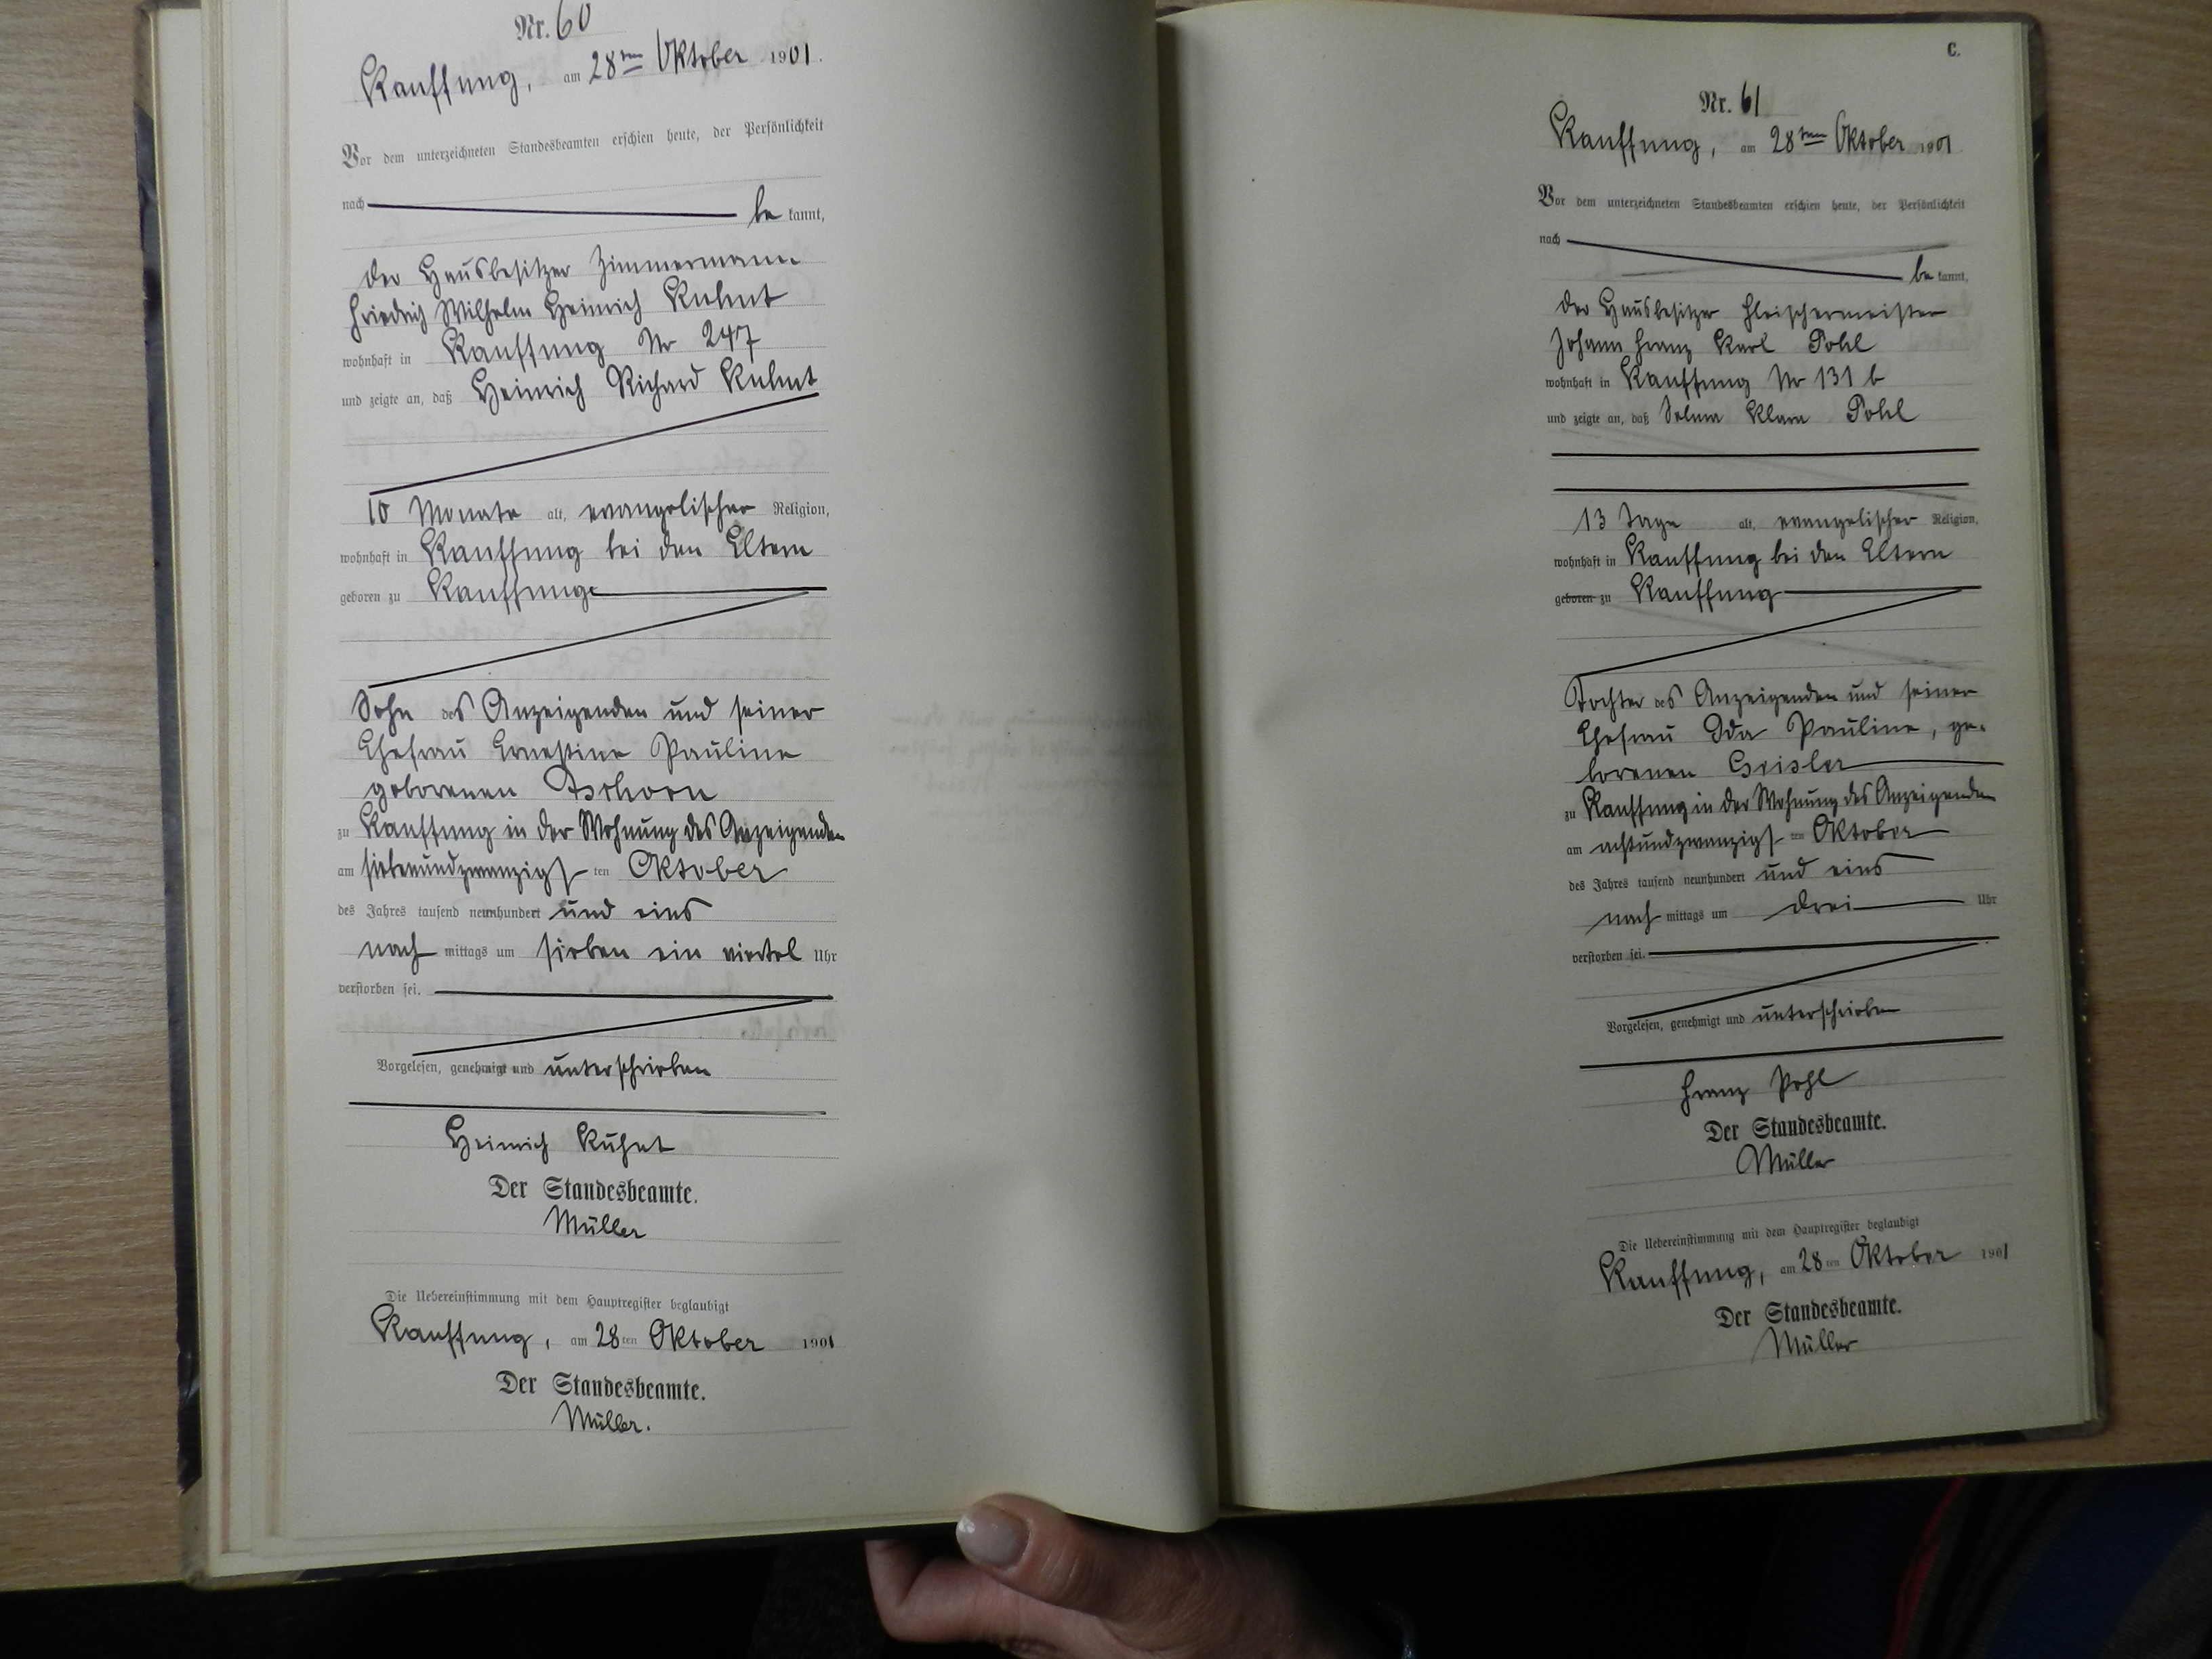 Nr. 60
Kauffung, am 28ten Oktober 1901.
Vor dem unterzeichneten Standesbeamten erschien heute, der Persönlichkeit
nach be kannt,
der Hausbesitzer Zimmermann
Friedrich Wilhelm Heinrich Kuhnt
wohnhaft in Kauffung Nr 247
und zeigte an, daß Heinrich Richard Kuhnt
10 Monate alt, evangelischer Religion,
wohnhaft in Kauffung bei den Eltern
geboren zu Kauffung
Sohn des Anzeigenden und seiner
Ehefrau Ernestine Pauline
geborenen Tschorn
zu Kauffung in der Wohnung des Anzeigenden
am siebenundzwanzigs ten Oktober
des Jahres tausend neunhundert und eins
nach mittags um sieben ein viertel Uhr
verstorben sei.
Vorgelesen, genehmigt und unterschrieben
Heinrich Kuhnt
Der Standesbeamte.
Müller
Die Uebereinstimmung mit dem Hauptregister beglaubigt
Kauffung, am 28ten Oktober 1901
Der Standesbeamte.
Müller.
C.
Nr. 61
Kauffung, am 28ten Oktober 1901
Vor dem unterzeichneten Standesbeamten erschien heute, der Persönlichkeit
nach be kannt,
der Hausbesitzer Fleischermeister
Johann Franz Karl Pohl
wohnhaft in Kauffung Nr 131 b
und zeigte an, daß Selma Klara Pohl
13 Tage alt, evangelischer Religion,
wohnhaft in Kauffung bei den Eltern
geboren zu Kauffung
Tochter des Anzeigenden und seiner
Ehefrau Ida Pauline, ge-
borenen Geisler
zu Kauffung in der Wohnung des Anzeigenden
am achtundzwanzigs ten Oktober
des Jahres tausend neunhundert und eins
nach mittags um drei Uhr
verstorben sei.
Vorgelesen, genehmigt und unterschrieben
Franz Pohl
Der Standesbeamte.
Müller
Die Uebereinstimmung mit dem Hauptregister beglaubigt
Kauffung, am 28ten Oktober 1901
Der Standesbeamte.
Müller